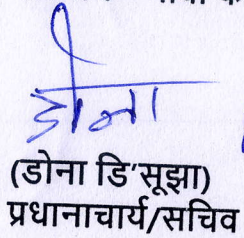 डोना
(डोना डि'सूझा)
प्रधानाचार्य/सचिव